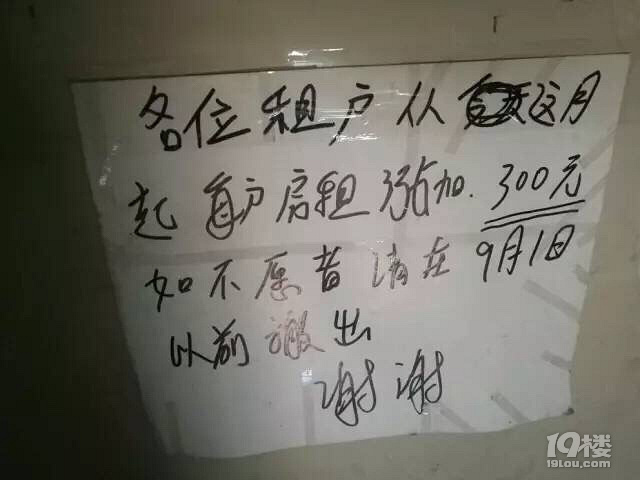 各位租户从这月
起每户房租涨加.300元
如不愿者请在9月1日
以前搬出
谢谢
19楼
19lou.com